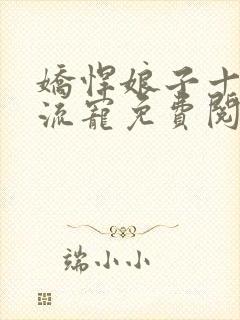 嬌悍娘子十
流寵免費閱
端小小